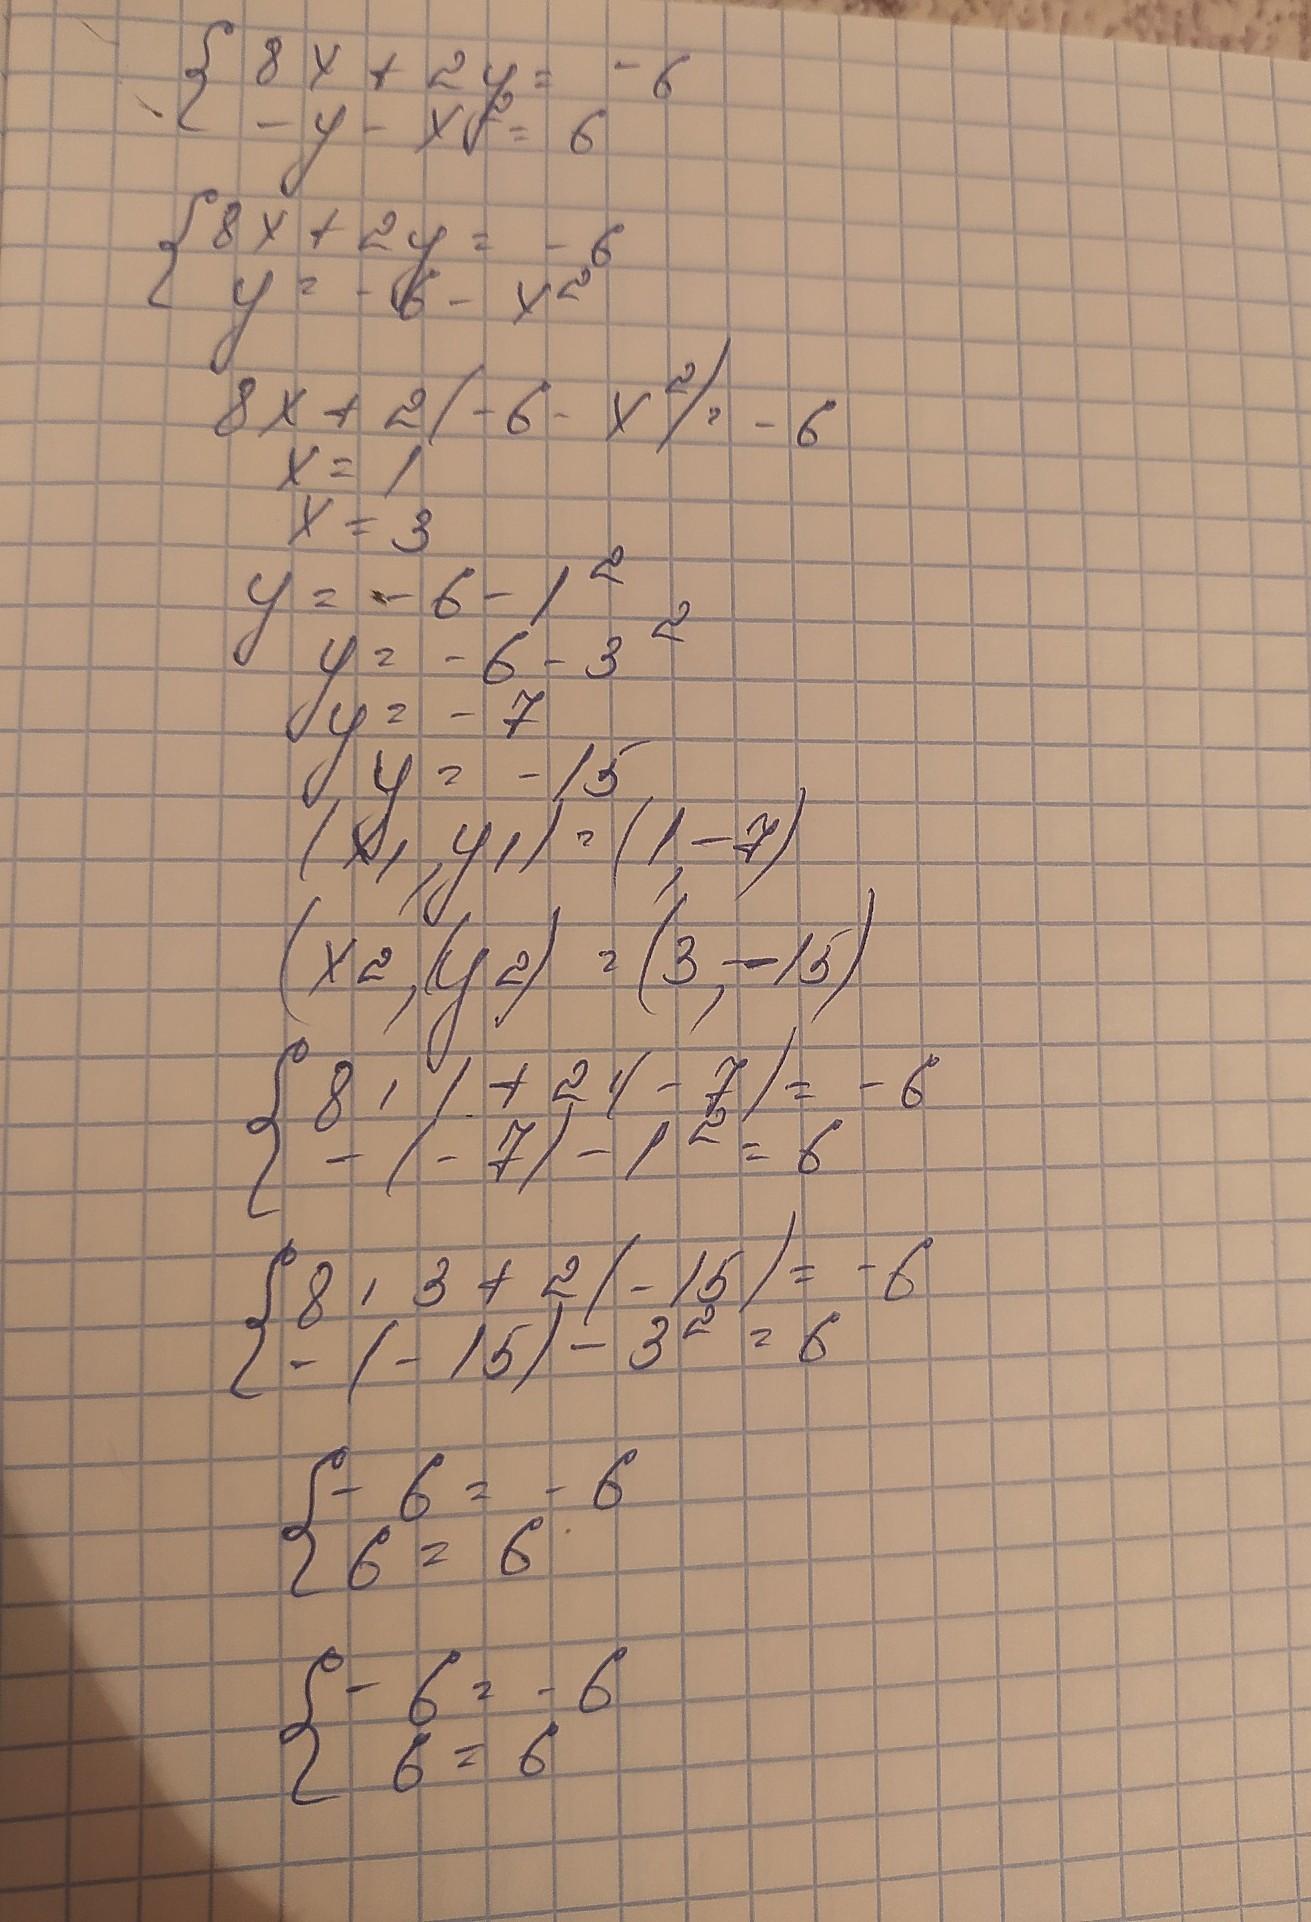 { 8x + 2y = -6
- y - x² = 6
{ 8x + 2y = -6
y = -6 - x²
8x + 2(-6 - x²) = -6
x = 1
x = 3
y = -6 - 1²
y = -6 - 3²
y = -7
y = -15
(x1, y1) = (1, -7)
(x2, y2) = (3, -15)
{ 8 · 1 + 2 · (-7) = -6
- (-7) - 1² = 6
{ 8 · 3 + 2(-15) = -6
- (-15) - 3² = 6
{ -6 = -6
6 = 6
{ -6 = -6
6 = 6